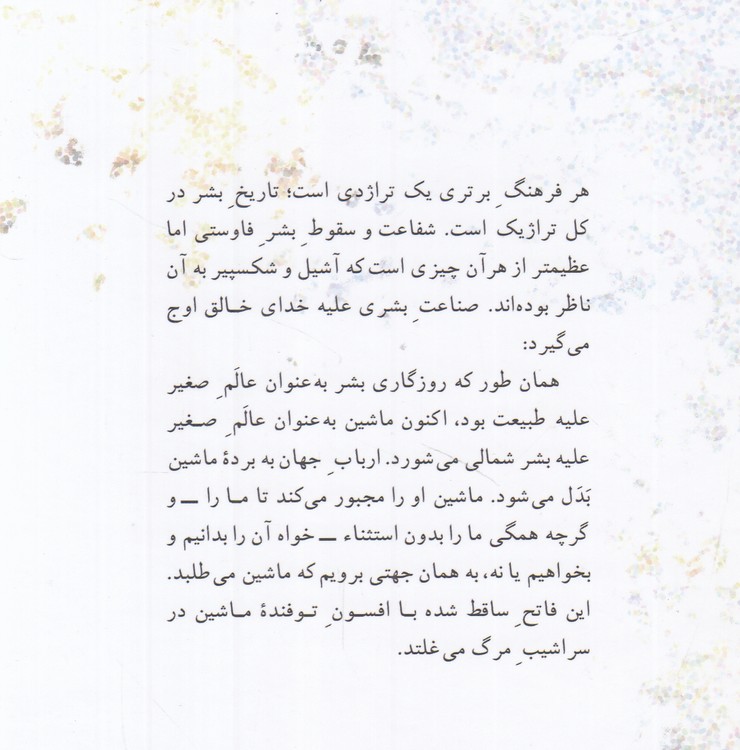 هر فرهنگِ برتری یک تراژدی است؛ تاریخِ بشر در
کل تراژیک است. شفاعت و سقوطِ بشرِ فاوستی اما
عظیمتر از هرآن چیزی است که آشیل و شکسپیر به آن
ناظر بوده‌اند. صناعتِ بشری علیه خدای خالق اوج
می‌گیرد:
همان طور که روزگاری بشر به‌عنوان عالَمِ صغیر
علیه طبیعت بود، اکنون ماشین به‌عنوان عالَمِ صغیر
علیه بشر شمالی می‌شورد. اربابِ جهان به بردهٔ ماشین
بَدَل می‌شود. ماشین او را مجبور می‌کند تا ما را — و
گرچه همگی ما را بدون استثناء — خواه آن را بدانیم و
بخواهیم یا نه، به همان جهتی برویم که ماشین می‌طلبد.
این فاتحِ ساقط شده با افسونِ توفندهٔ ماشین در
سراشیبِ مرگ می‌غلتد.